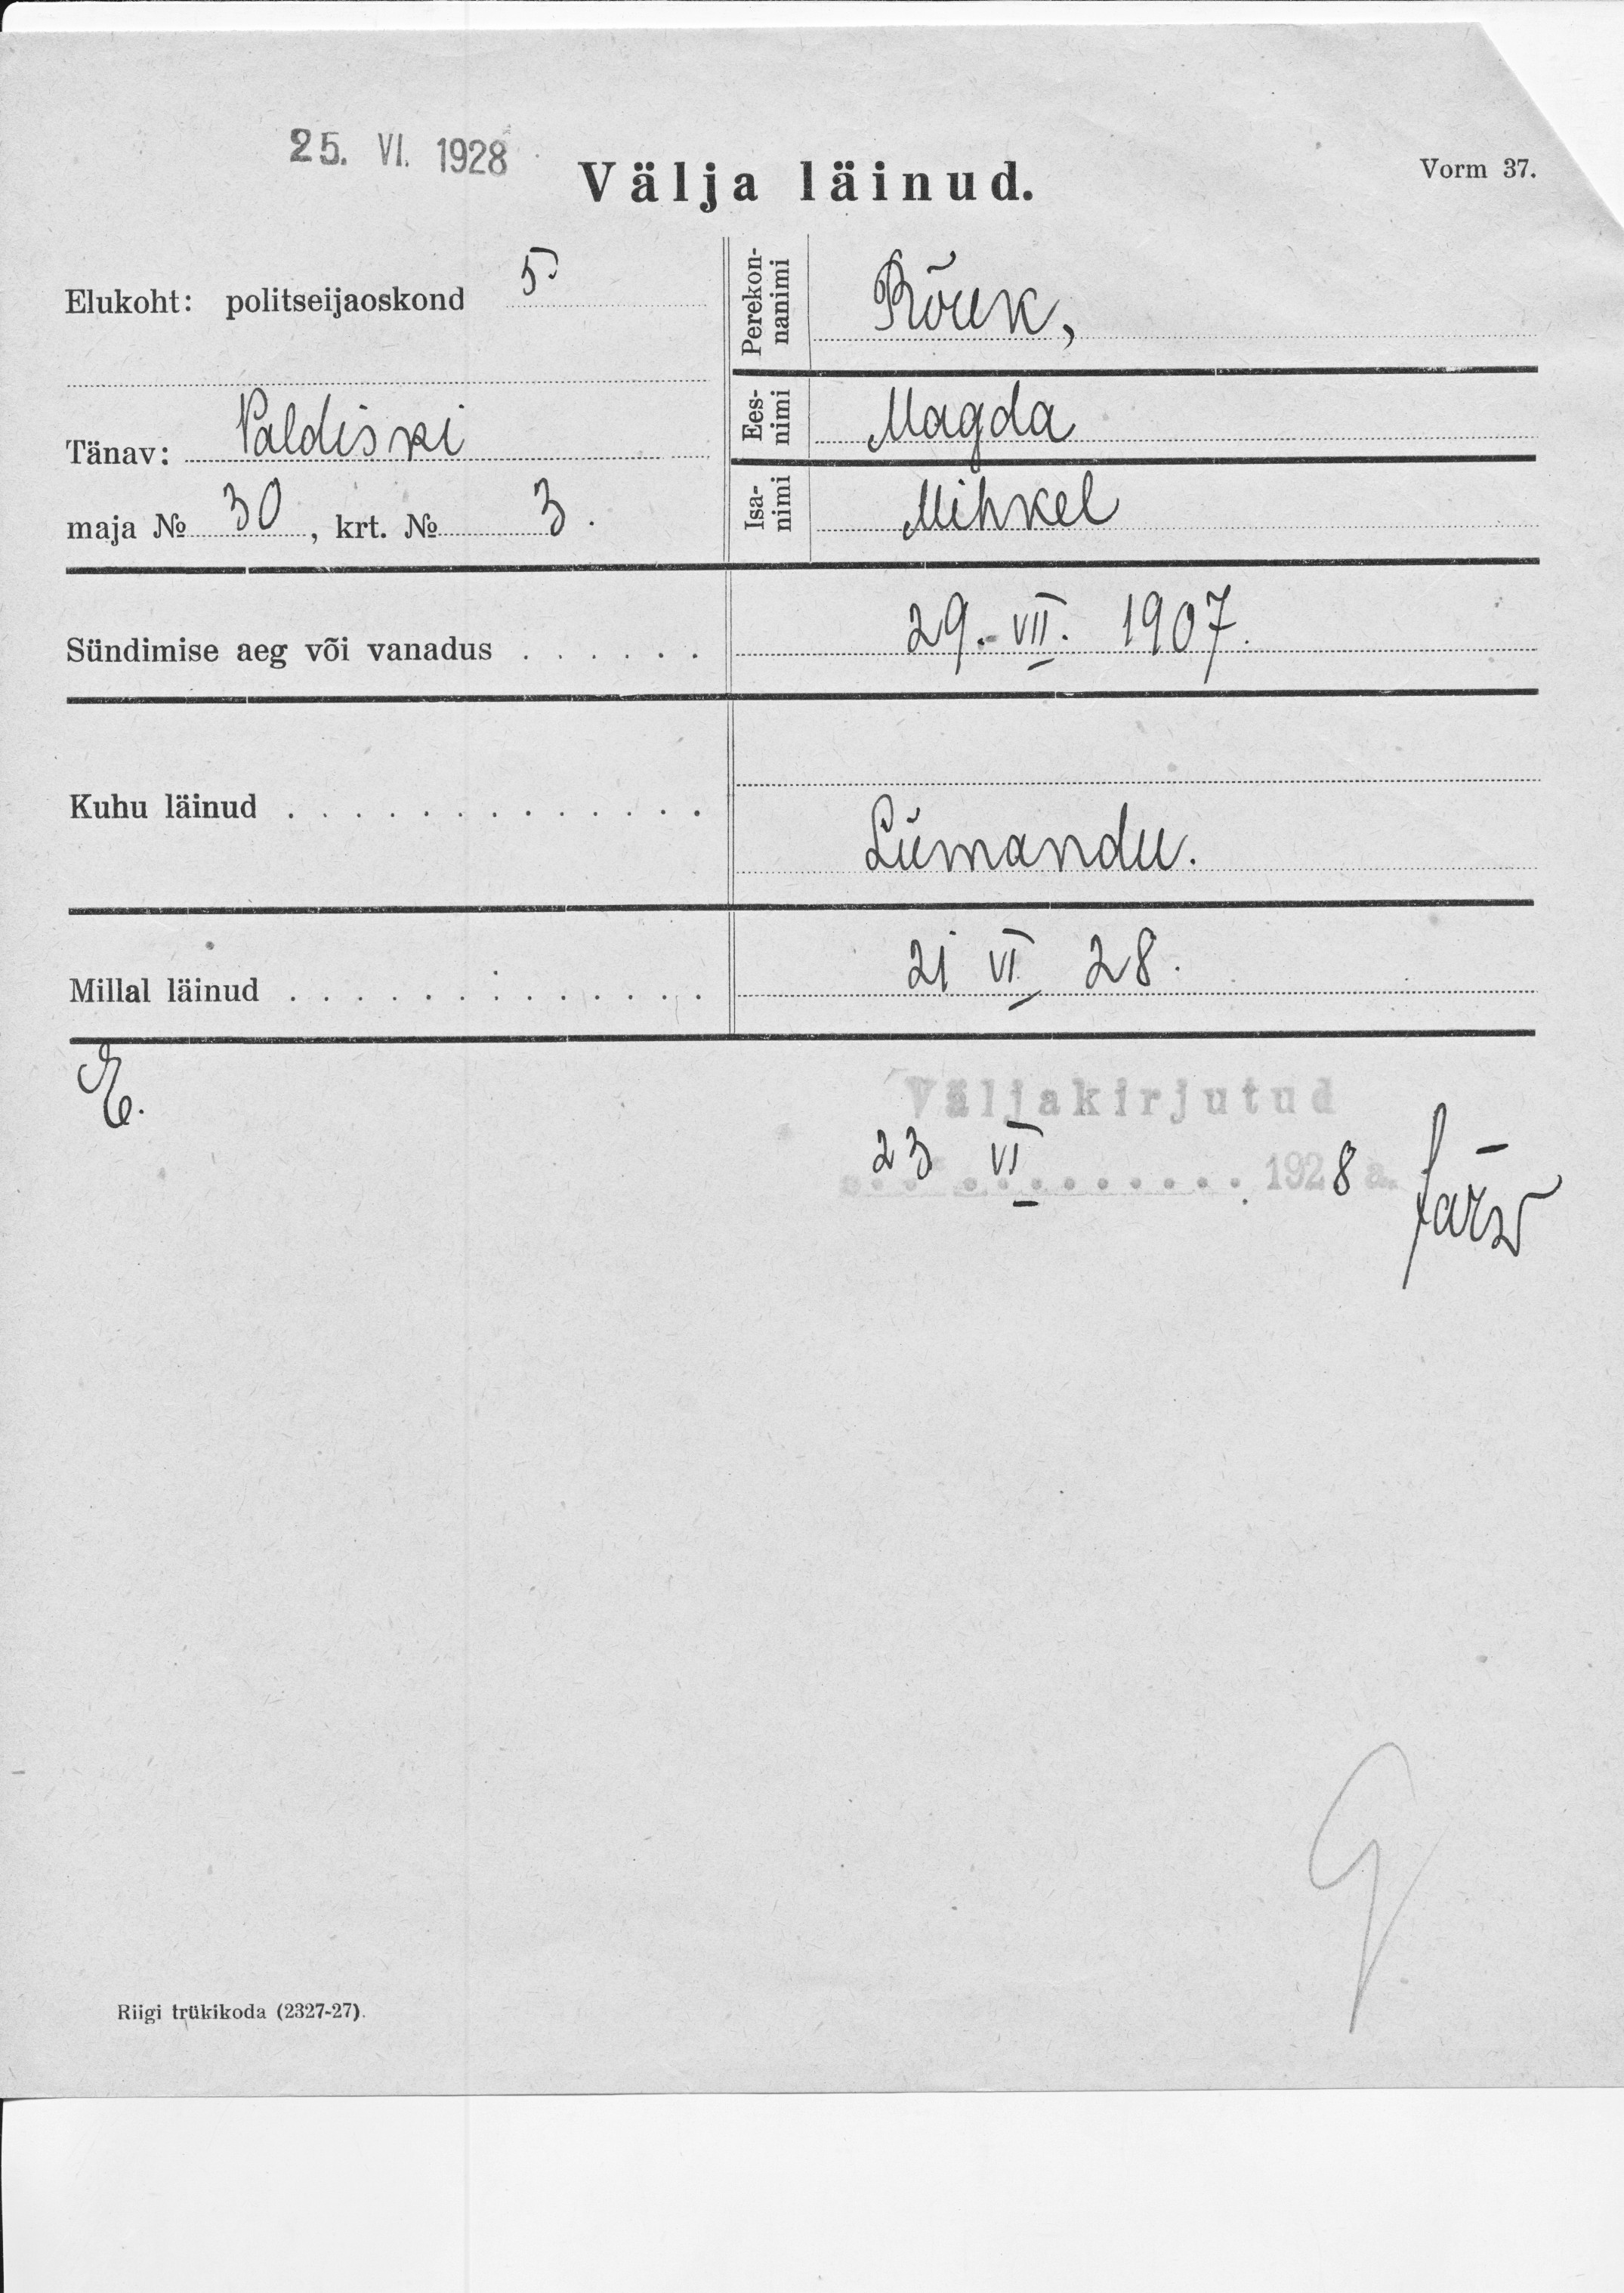 25. VI. 1928
Välja läinud.
Vorm 37.
Elukoht: politseijaoskond 5.
Tänav: Paldiski
maja № 30, krt. № 3.
Perekonnanimi Rõuk,
Eesnimi Magda
Isanimi Mihkel
Sündimise aeg või vanadus . . . . . . 29. VII. 1907.
Kuhu läinud . . . . . . . . . . . . . Liimandu.
Millal läinud . . . . . . . . . . . . . 21 VI 28.
E.
Väljakirjutud
23 VI 1928 a.
Riigi trükikoda (2327-27).